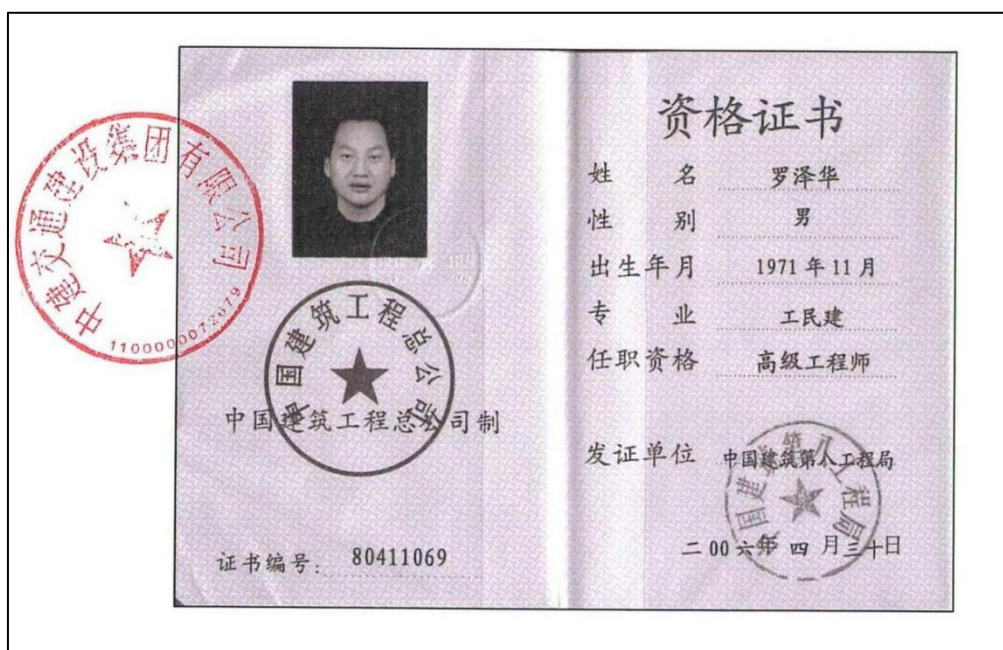 中建交通建设集团有限公司
1100000072679
中国建筑工程总公司
中国建筑工程总公司制
证书编号: 80411069
资格证书
姓 名 罗泽华
性 别 男
出生年月 1971 年 11 月
专 业 工民建
任职资格 高级工程师
发证单位 中国建筑第八工程局
中国建筑第八工程局
二00六年 四 月三十日